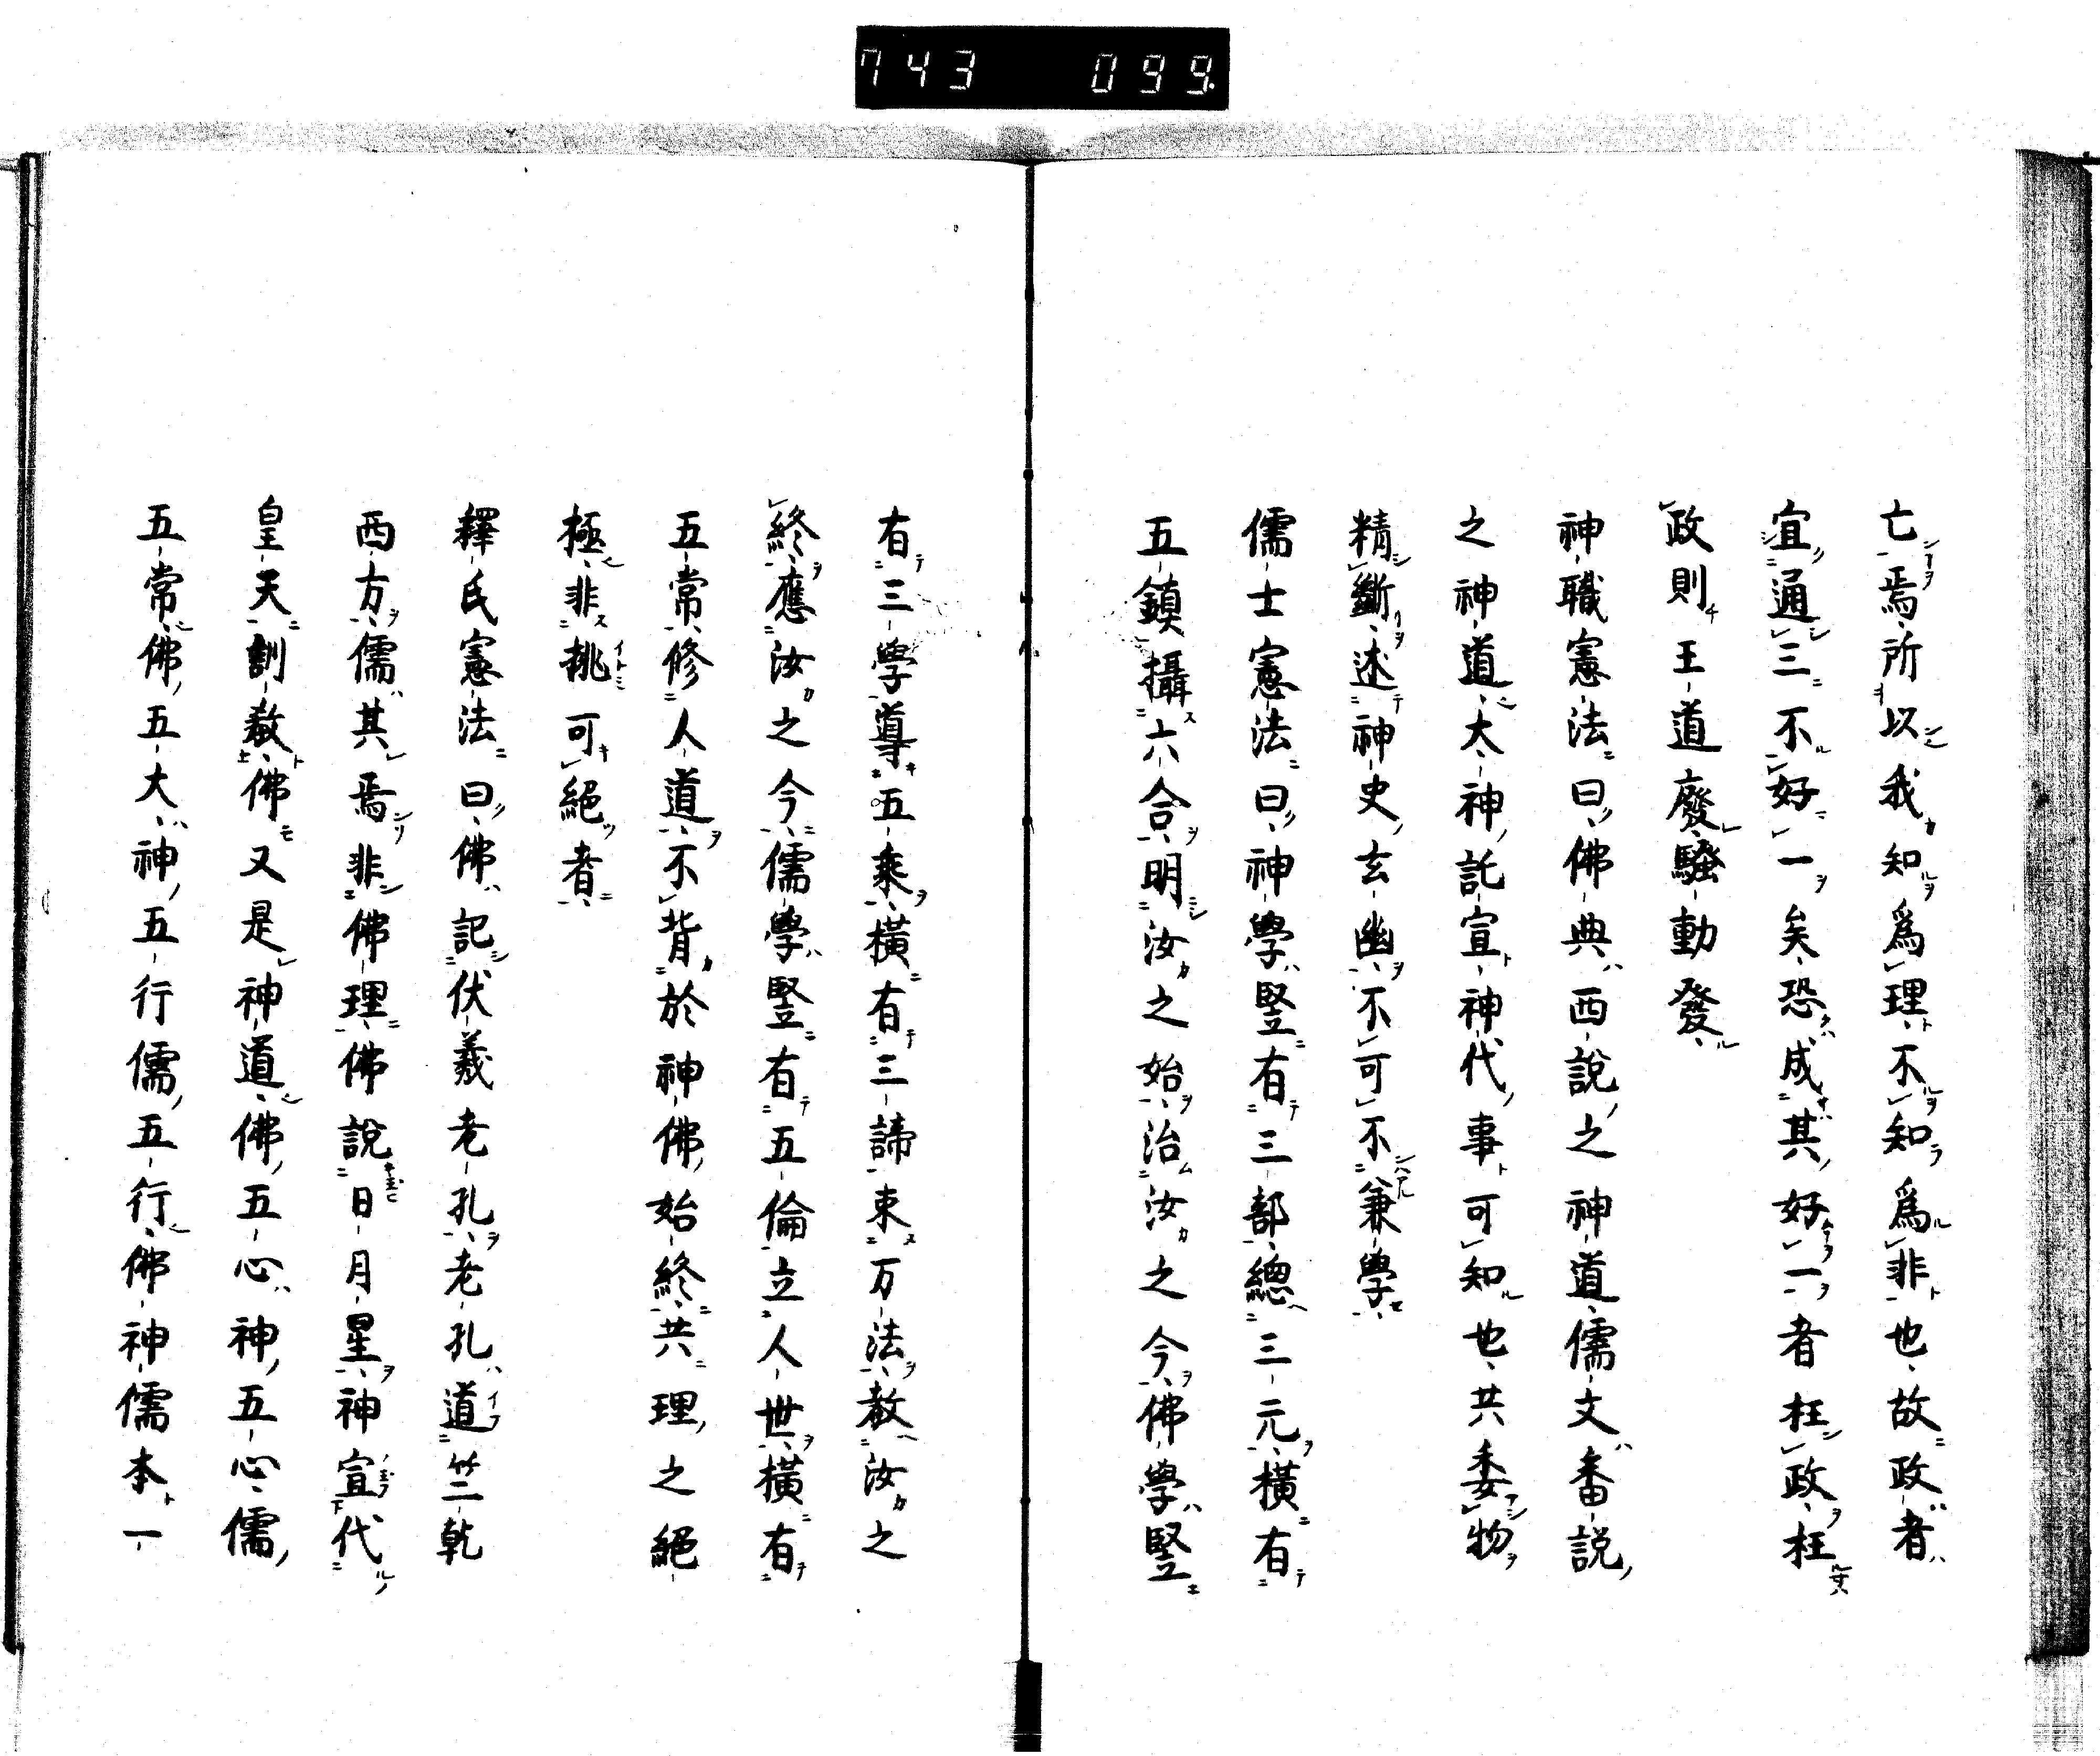 743 099
亡焉所以我知爲理不知爲非也故政者
宜通三不好一矣恐成其好一者枉政枉
政則王道廢騷動發
神職憲法曰佛典西說之神道儒文畨説
之神道大神託宣神代事可知也共委物
精斷述神史玄幽不可不兼學
儒士憲法曰神學豎有三部總三元橫有
五鎮攝六合明汝之始治汝之今佛學豎
有三學導五乘橫有三諦束万法教汝之
終應汝之今儒學豎有五倫立人世橫有
五常修人道不背於神佛始終共理之絕
極非挑可絕者
釋氏憲法曰佛記伏羲老孔老孔道竺乾
西方儒其焉非佛理佛說日月星神宣代
皇天訓教佛又是神道佛五心神五心儒
五常佛五大神五行儒五行佛神儒本一